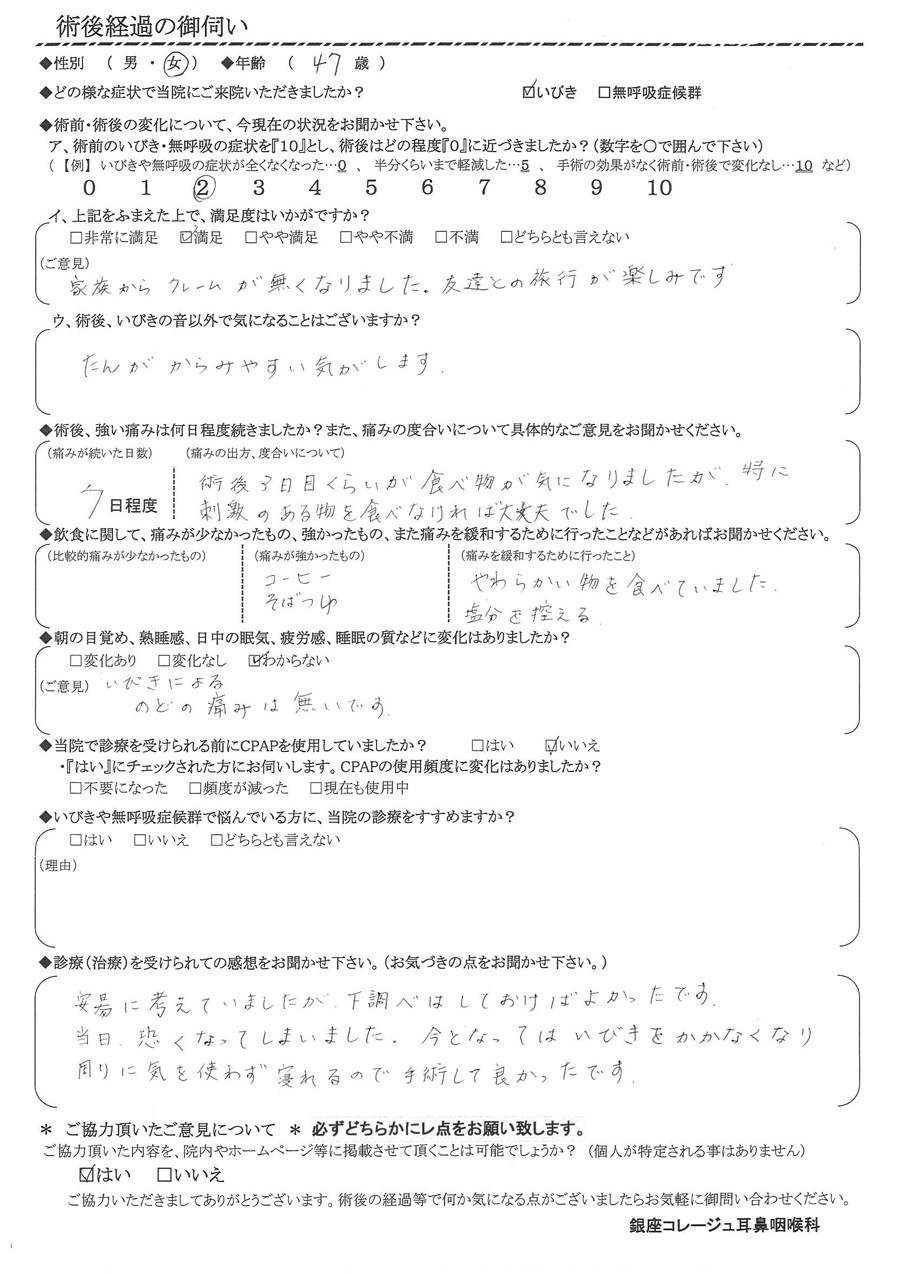 術後経過の御伺い
◆性別 （ 男 ・ 女 ） ◆年齢 （ 47 歳 ）
◆どの様な症状で当院にご来院いただきましたか？ ☑いびき □無呼吸症候群
◆術前・術後の変化について、今現在の状況をお聞かせ下さい。
ア、術前のいびき・無呼吸の症状を『10』とし、術後はどの程度『0』に近づきましたか？（数字を〇で囲んで下さい）
（【例】 いびきや無呼吸の症状が全くなくなった…0 、 半分くらいまで軽減した…5 、 手術の効果がなく術前・術後で変化なし…10 など）
0 1 2 3 4 5 6 7 8 9 10
イ、上記をふまえた上で、満足度はいかがですか？
□非常に満足 ☑満足 □やや満足 □やや不満 □不満 □どちらとも言えない
(ご意見)
家族から クレームが無くなりました。友達との旅行が楽しみです
ウ、術後、いびきの音以外で気になることはございますか？
たんが からみやすい気がします.
◆術後、強い痛みは何日程度続きましたか？また、痛みの度合いについて具体的なご意見をお聞かせください。
（痛みが続いた日数） （痛みの出方、度合いについて）
7 日程度
術後3日目くらいが食べ物が気になりましたが、特に
刺激のある物を食べなければ大丈夫でした.
◆飲食に関して、痛みが少なかったもの、強かったもの、また痛みを緩和するために行ったことなどがあればお聞かせください。
（比較的痛みが少なかったもの） （痛みが強かったもの） （痛みを緩和するために行ったこと）
コーヒー
そばつゆ
やわらかい物を食べていました.
塩分を控える.
◆朝の目覚め、熟睡感、日中の眠気、疲労感、睡眠の質などに変化はありましたか？
□変化あり □変化なし ☑わからない
(ご意見) いびきによる
のどの痛みは無いです.
◆当院で診療を受けられる前にCPAPを使用していましたか？ □はい ☑いいえ
・『はい』にチェックされた方にお伺いします。CPAPの使用頻度に変化はありましたか？
□不要になった □頻度が減った □現在も使用中
◆いびきや無呼吸症候群で悩んでいる方に、当院の診療をすすめますか？
□はい □いいえ □どちらとも言えない
(理由)
◆診療（治療）を受けられての感想をお聞かせ下さい。（お気づきの点をお聞かせ下さい。）
安易に考えていましたが、下調べはしておけばよかったです.
当日、恐くなってしまいました. 今となってはいびきをかかなくなり
周りに気を使わず寝れるので手術して良かったです.
＊ ご協力頂いたご意見について ＊ 必ずどちらかにレ点をお願い致します。
ご協力頂いた内容を、院内やホームページ等に掲載させて頂くことは可能でしょうか？ （個人が特定される事はありません）
☑はい □いいえ
ご協力いただきましてありがとうございます。術後の経過等で何か気になる点がございましたらお気軽に御問い合わせください。
銀座コレージュ耳鼻咽喉科